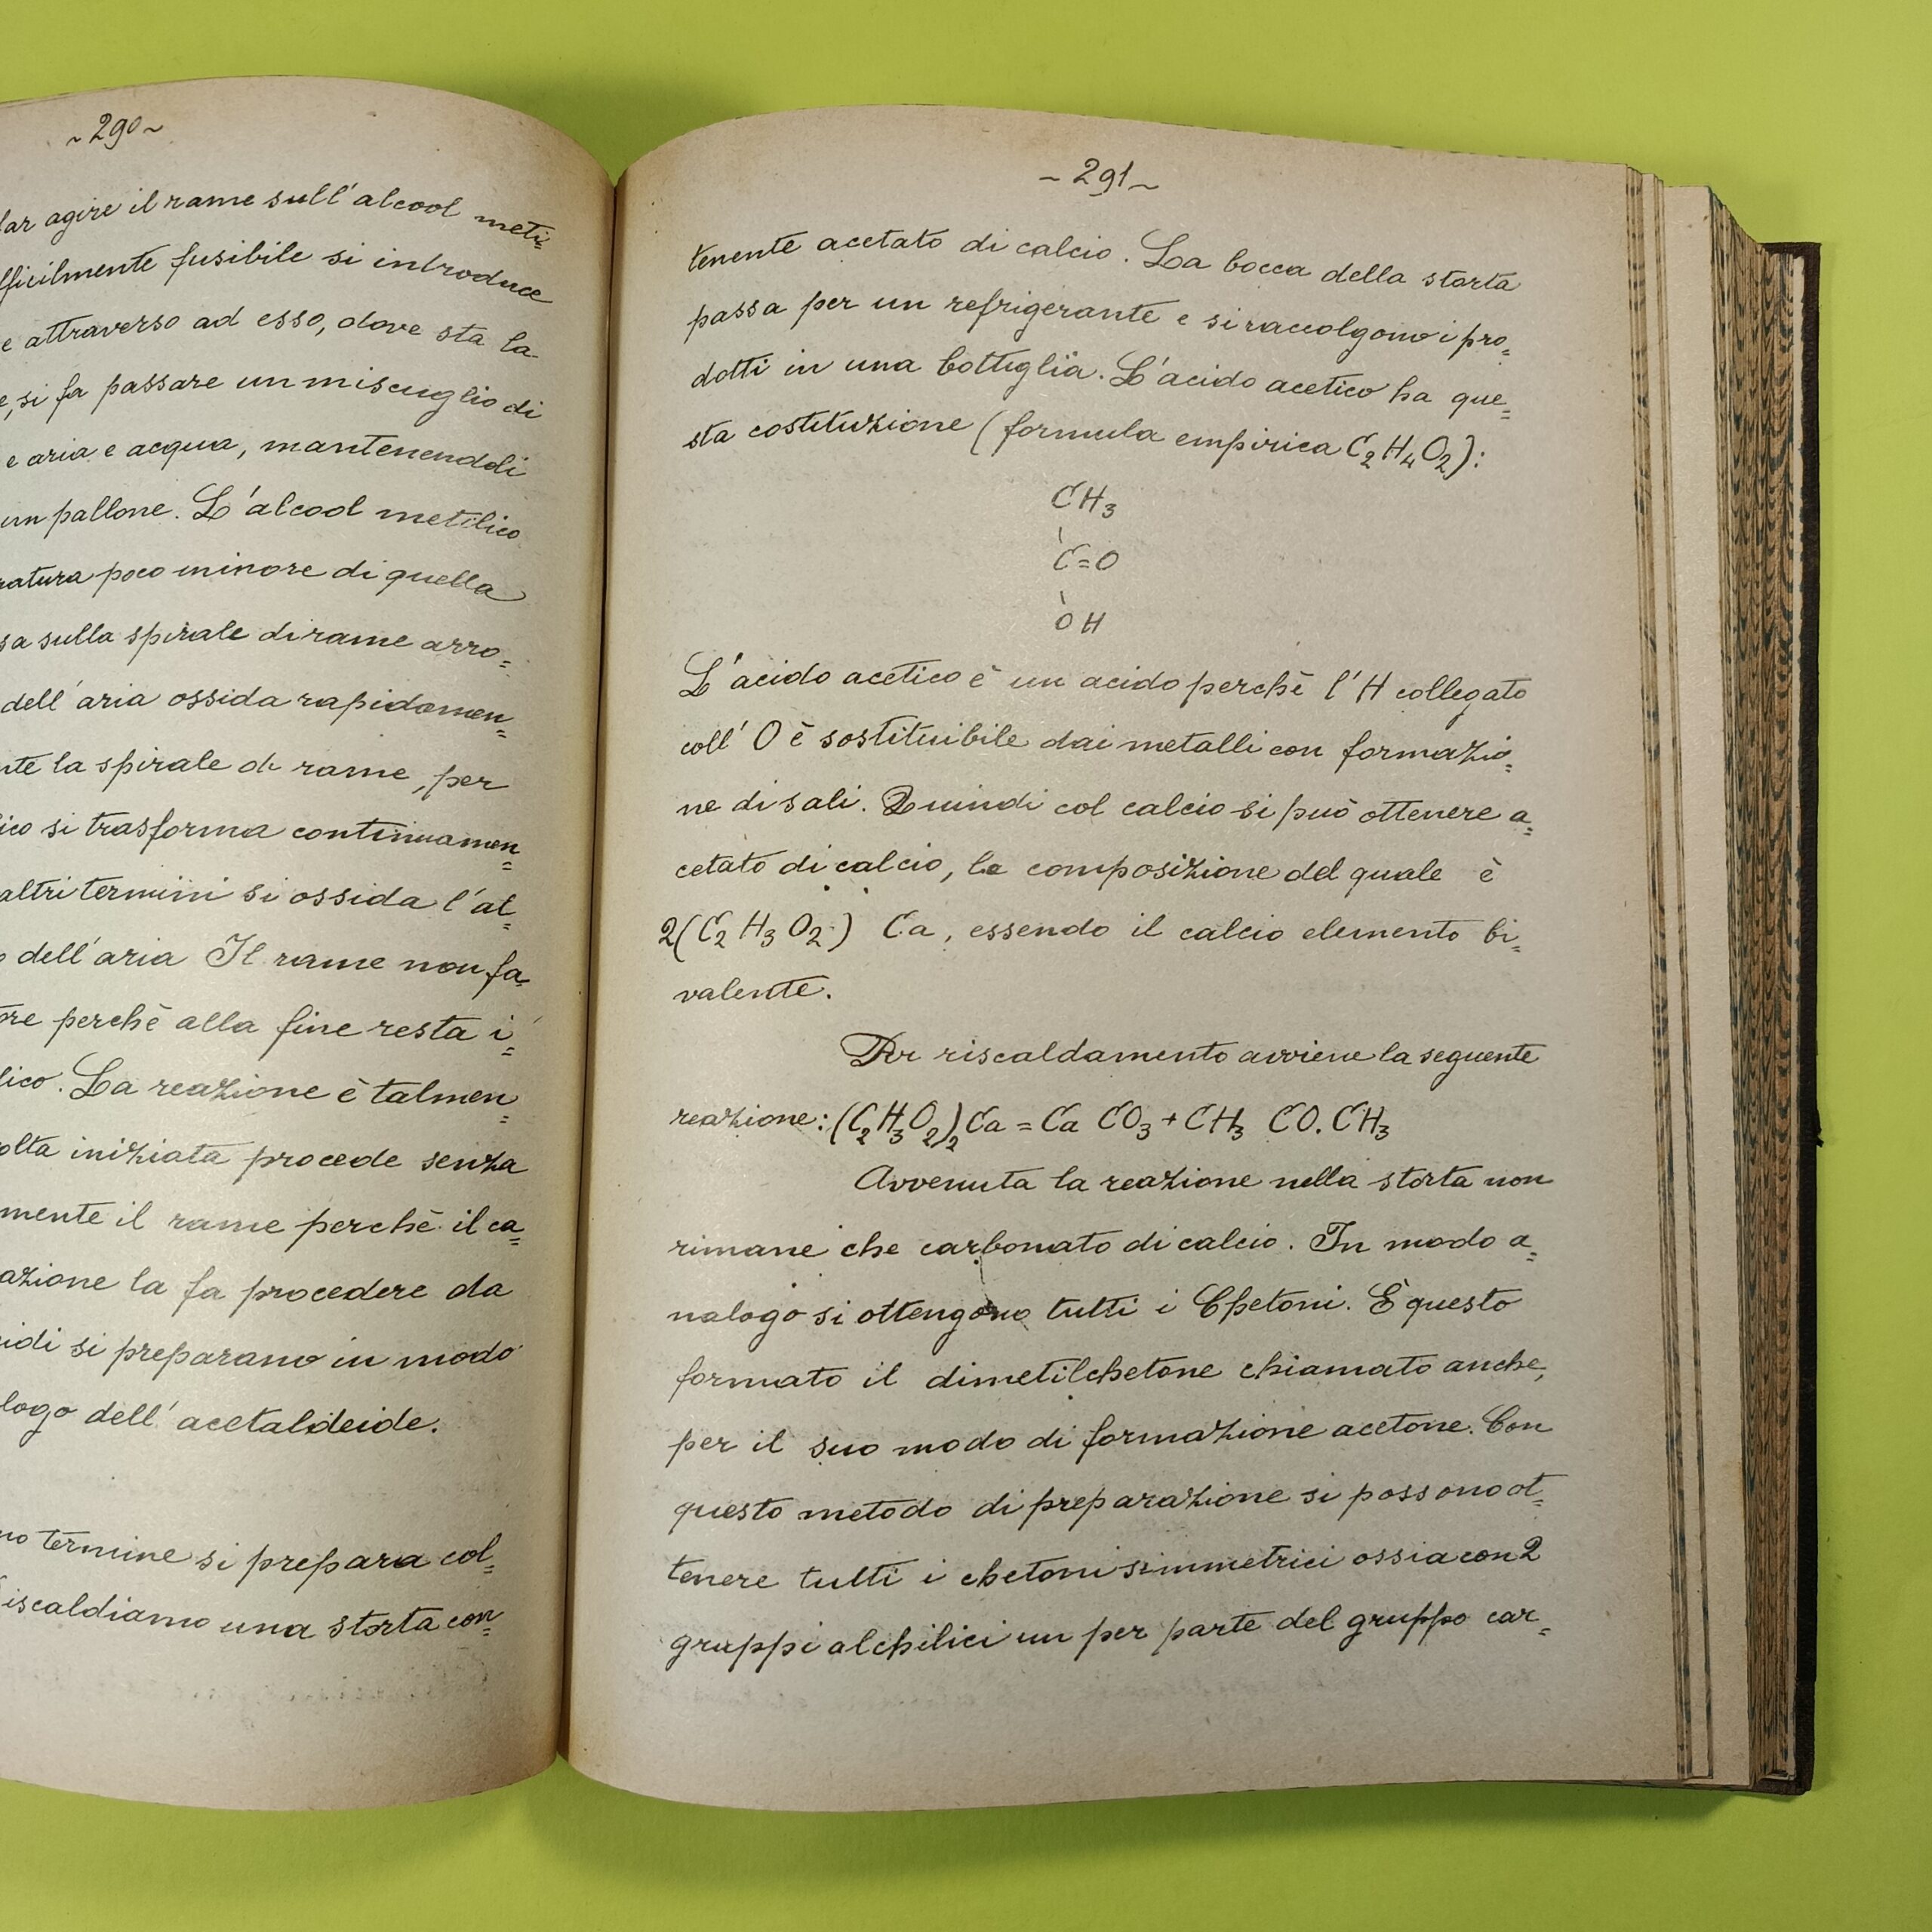 ~290~
dar agire il rame sull'alcool meti=
fficilmente fusibile si introduce
e attraverso ad esso, dove sta la
e, si fa passare un miscuglio di
e aria e acqua, mantenendoli
un pallone. L'alcool metilico
ratura poco minore di quella
sa sulla spirale di rame arro=
dell'aria ossida rapidamen=
nte la spirale di rame, per
ico si trasforma continuamen=
altri termini si ossida l'al=
o dell'aria Il rame non fa=
ore perchè alla fine resta i=
lico. La reazione è talmen=
olta iniziata procede senza
mente il rame perchè il ca=
azione la fa procedere da
idi si preparano in modo
logo dell'acetaldeide.
no termine si prepara col=
iscaldiamo una storta con=
~291~
tenente acetato di calcio. La bocca della storta
passa per un refrigerante e si raccolgono i pro=
dotti in una bottiglia. L'acido acetico ha que=
sta costituzione (formula empirica C2H4O2):
CH3
C=O
OH
L'acido acetico è un acido perchè l'H collegato
coll'O è sostituibile dai metalli con formazio=
ne di sali. Quindi col calcio si può ottenere a=
cetato di calcio, la composizione del quale è
2(C2H3O2) Ca, essendo il calcio elemento bi=
valente.
Per riscaldamento avviene la seguente
reazione: (C2H3O2)2Ca = Ca CO3 + CH3 CO. CH3
Avvenuta la reazione nella storta non
rimane che carbonato di calcio. In modo a=
nalogo si ottengono tutti i Chetoni. È questo
formato il dimetilchetone chiamato anche,
per il suo modo di formazione acetone. Con
questo metodo di preparazione si possono ot=
tenere tutti i chetoni simmetrici ossia con 2
gruppi alchilici un per parte del gruppo car=